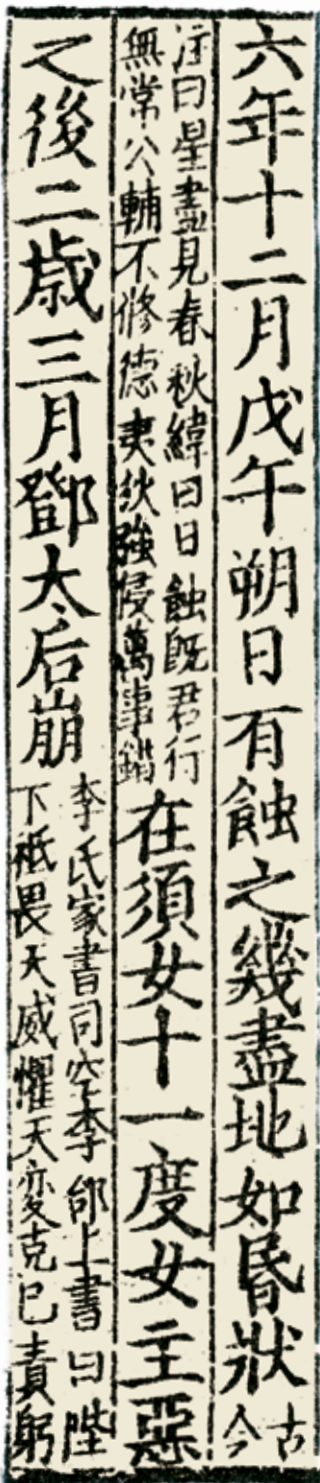 六年十二月戊午朔日有蝕之幾盡地如昏狀古今
注曰星盡見春秋緯曰日蝕既君行無常公輔不修德夷狄強侵萬事錯在須女十一度女主惡
之後二歲三月鄧太后崩李氏家書司空李郃上書曰陛下祗畏天威懼天變克已責躬